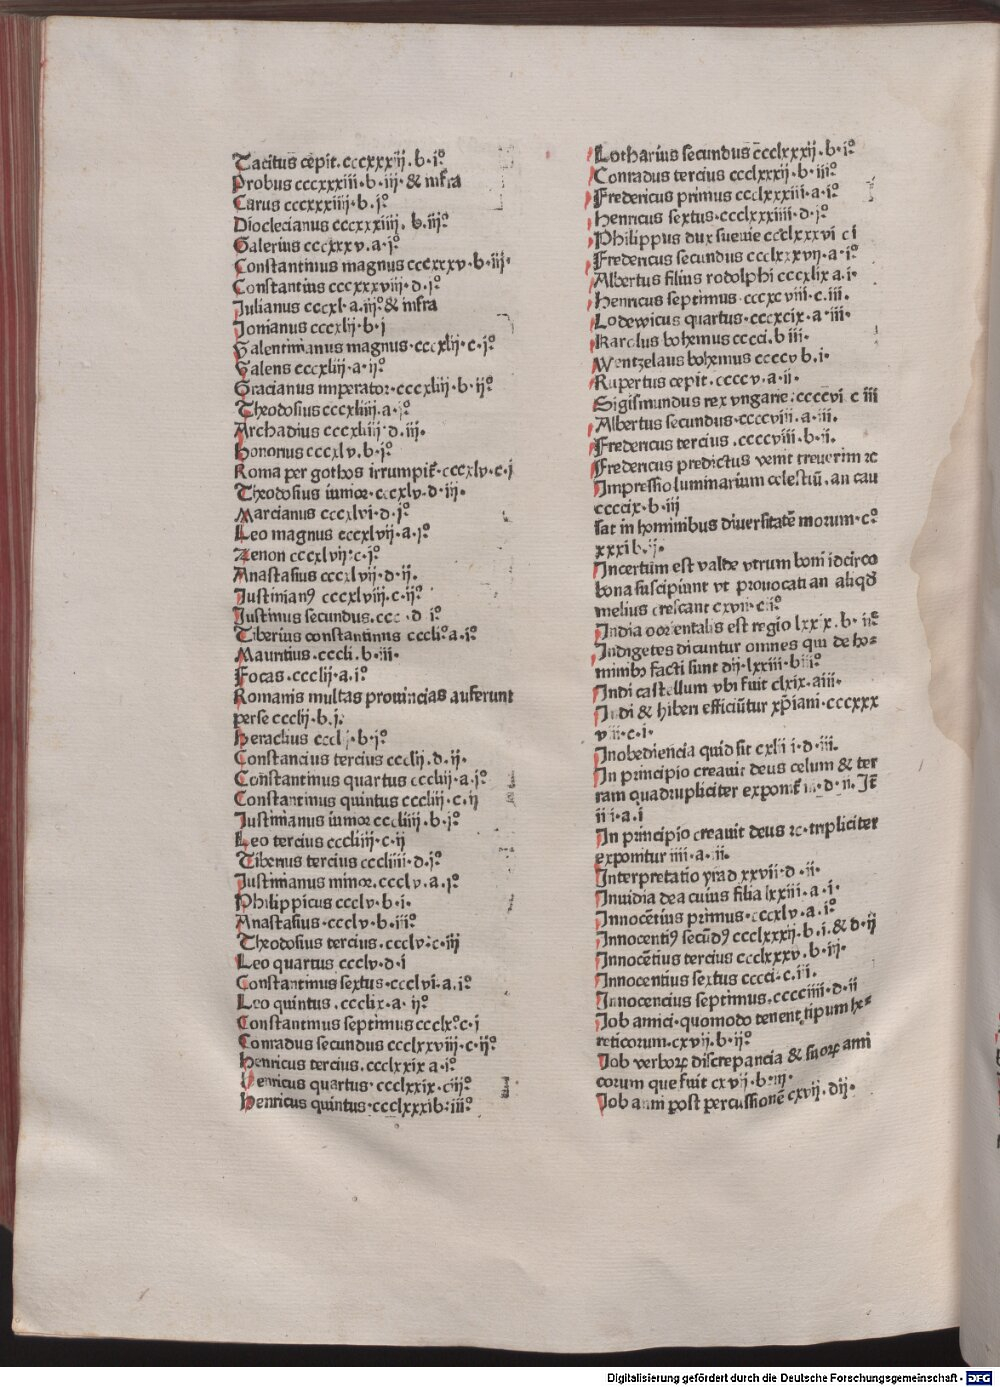 Tacitus cepit. cccxxxiij. b. iº
Probus cccxxxiii. b. iij. & infra
Carus cccxxxiiij. b. iº
Dioclecianus cccxxxiiij. b. iijº
Galerius cccxxxv. a. iº
Constantinus magnus cccxxxv. b. iij.
Constantius cccxxxviij. d. iº
Julianus cccxl. a. iijº & infra
Jonianus cccxlij. b. i
Galentinianus magnus. cccxlij. c. iº
Galens cccxliij. a. ijº
Gracianus imperator. cccxliij. b. ijº
Theodosius cccxliiij. a. iº
Archadius cccxliiij. d. iij.
Honorius cccxlv. b. iº
Roma per gothos irrumpit̃. cccxlv. c. i
Theodosius iunior. cccxlv. d. iij.
Marcianus cccxlvi. d. iº
Leo magnus cccxlvij. a. iº
Zenon cccxlvij. c. iº
Anastasius cccxlvij. d. ij.
Justinianꝰ cccxlviij. c. ijº
Justinus secundus. ccc d iº
Tiberius constantinus cccli. a. iº
Mauritius. cccli. b. iij.
Focas. ccclij. a. iº
Romanis multas prouincias auferunt
perse ccclij. b. i.
Heraclius ccclij. b. iº
Constancius tercius ccclij. d. ij.
Constantinus quartus cccliij. a. iº
Constantinus quintus cccliij. c. ij
Justinianus iunior cccliiij. b. iº
Leo tercius cccliiij. c. ij
Tiberius tercius cccliiij. d. iº
Justinianus minor. ccclv. a. iº
Philippicus ccclv. b. i.
Anastasius. ccclv. b. iijº
Theodosius tercius. ccclv. c. iij
Leo quartus ccclv. d. i
Constantinus sextus. ccclvi. a. iº
Leo quintus. ccclix. a. ijº
Constantinus septimus ccclxº c. i
Conradus secundus ccclxxviij. c. ijº
Henricus tercius. ccclxxix a. iº
Henricus quartus. ccclxxix. c iijº
Henricus quintus. ccclxxxi b. iijº
Lotharius secundus ccclxxxij. b. iº
Conradus tercius ccclxxxij. b. iijº
Fredericus primus ccclxxxiij. a. iº
Henricus sextus. ccclxxxiiij. d. iº
Philippus dux sueuie ccclxxxvi c i
Fredericus secundus ccclxxxvij. a. iº
Albertus filius rodolphi cccxlix a. i.
Henricus septimus. cccxcviij. c. iij.
Lodewicus quartus. cccxcix. a. iij.
Karolus bohemus cccci. b iij.
Wentzelaus bohemus ccccv b. i.
Rupertus cepit. ccccv. a. ij.
Sigismundus rex vngarie. ccccvi c iij
Albertus secundus. ccccviij. a. iij.
Fredericus tercius. ccccviij. b. ij.
Fredericus predictus venit treuerim ⁊c
Impressio luminarium celestiũ. an cau
ccccix. b. iij
sat in hominibus diuersitatẽ morum. cº
xxxi b. ij.
Incertum est valde vtrum boni idcirco
bona suscipiunt vt prouocati an aliqđ
melius crescant cxvij c. iº
India orientalis est regio lxxix. b. ijº
Indigetes dicuntur omnes qui de ho-
minibꝰ facti sunt dij. lxxiij. b iijº
Indi castellum vbi fuit clxix. a iij.
Indi & hiberi efficiũtur xp̃iani. cccxxx
viij. c. i.
Inobediencia quid sit cxliij. d. iij.
In principio creauit deus celum & ter
ram quadrupliciter exponit̃ iij. d. ij. It̃
iiij. a. i
In principio creauit deus ⁊c. tripliciter
exponitur iiij. a. ij.
Interpretatio yrad xxvij. d. ij.
Inuidia dea cuius filia lxxiij. a. i.
Innocẽtius primus. cccxlv. a. iº
Innocentiꝰ secũdꝰ ccclxxxij. b. i. & d. ij
Innocẽtius tercius ccclxxxv. b. iij.
Innocentius sextus cccci. c. iij.
Innocencius septimus. cccciiij. d. ij
Job amici. quomodo tenent tipum he-
reticorum. cxvij. b. ijº
Job verboꝝ discrepancia & suoꝝ ami
corum que fuit cxvij. b. iij.
Job anni post percussionẽ cxvij. d ij.
Digitalisierung gefördert durch die Deutsche Forschungsgemeinschaft - DFG